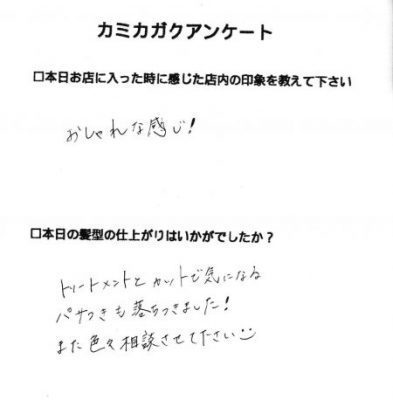 カミカガクアンケート
□本日お店に入った時に感じた店内の印象を教えて下さい
おしゃれな感じ!
□本日の髪型の仕上がりはいかがでしたか?
トリートメントとカットで気になる
パサつきも落ちつきました!
また色々相談させて下さい